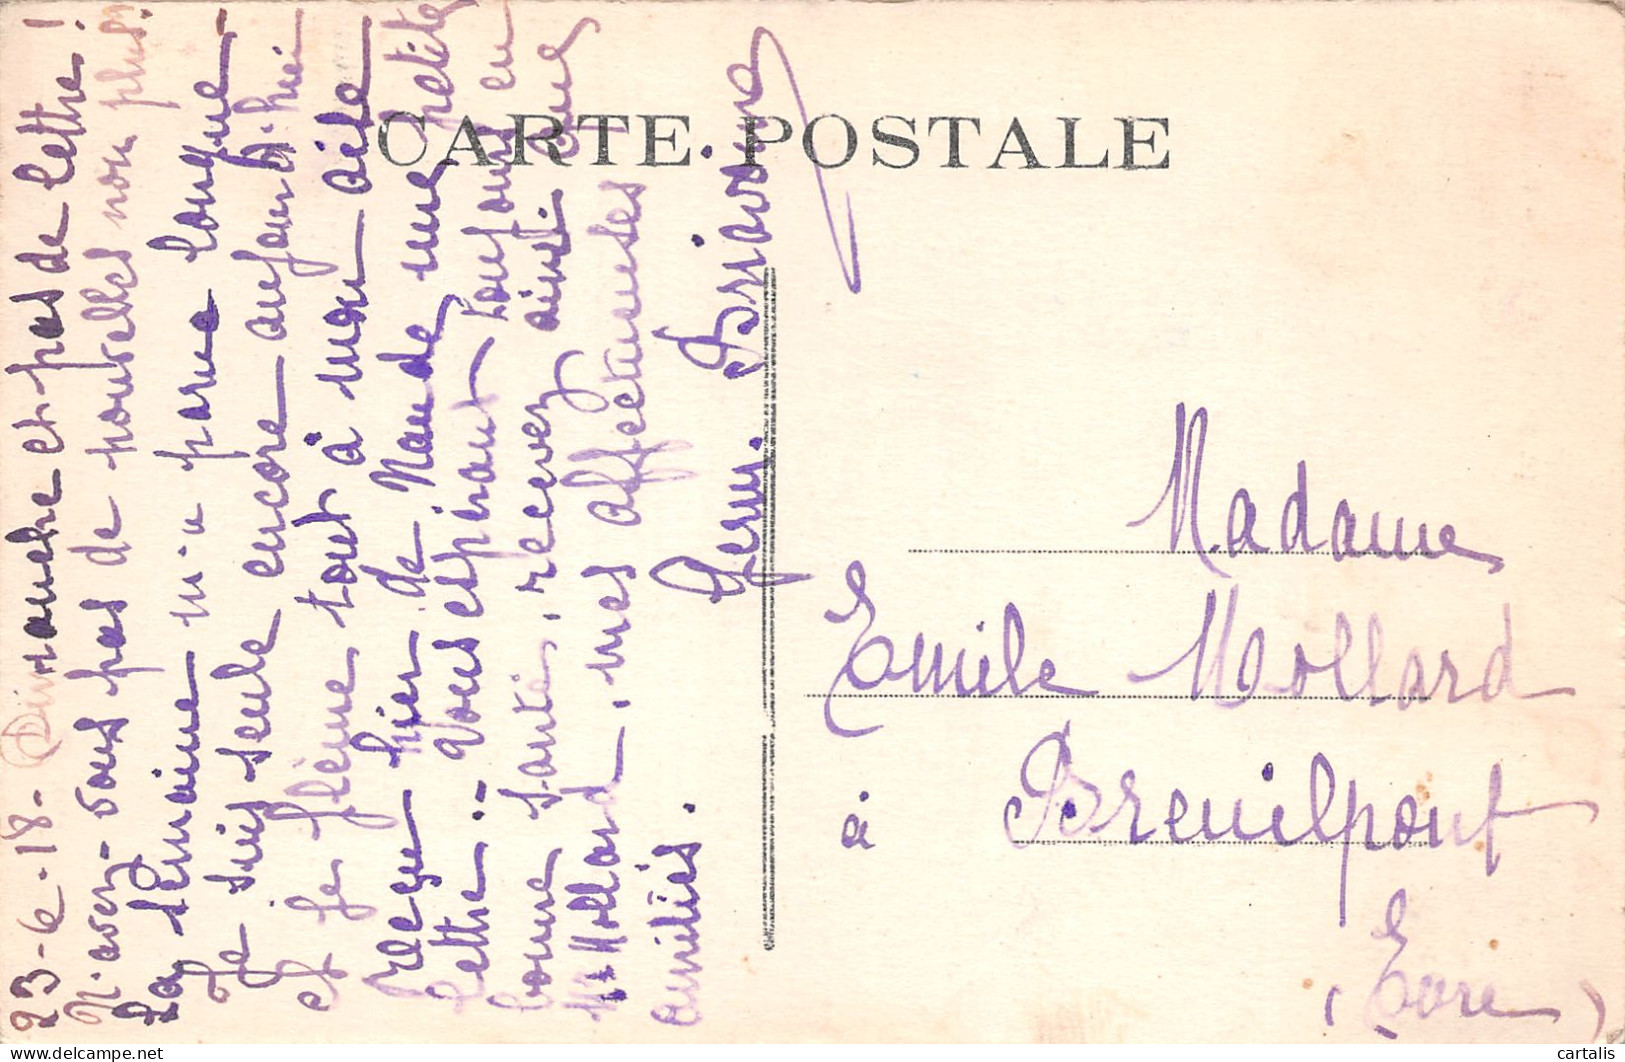 CARTE POSTALE
23-6-18- Dimanche et pas de lettre!
N'avez-vous pas de nouvelles non plus?
La semaine m'a paru longue
Je suis seule encore aujourd'hui
et je flême tout à mon aise
reçu hier de Maude une petite
lettre:- Vous espérant toujours en
bonne santé, recevez ainsi que
Mr Mollard, mes affectueuses
amitiés.
Germ.
Madame
Emile Mollard
à Breuilpont
(Eure)
cartalis